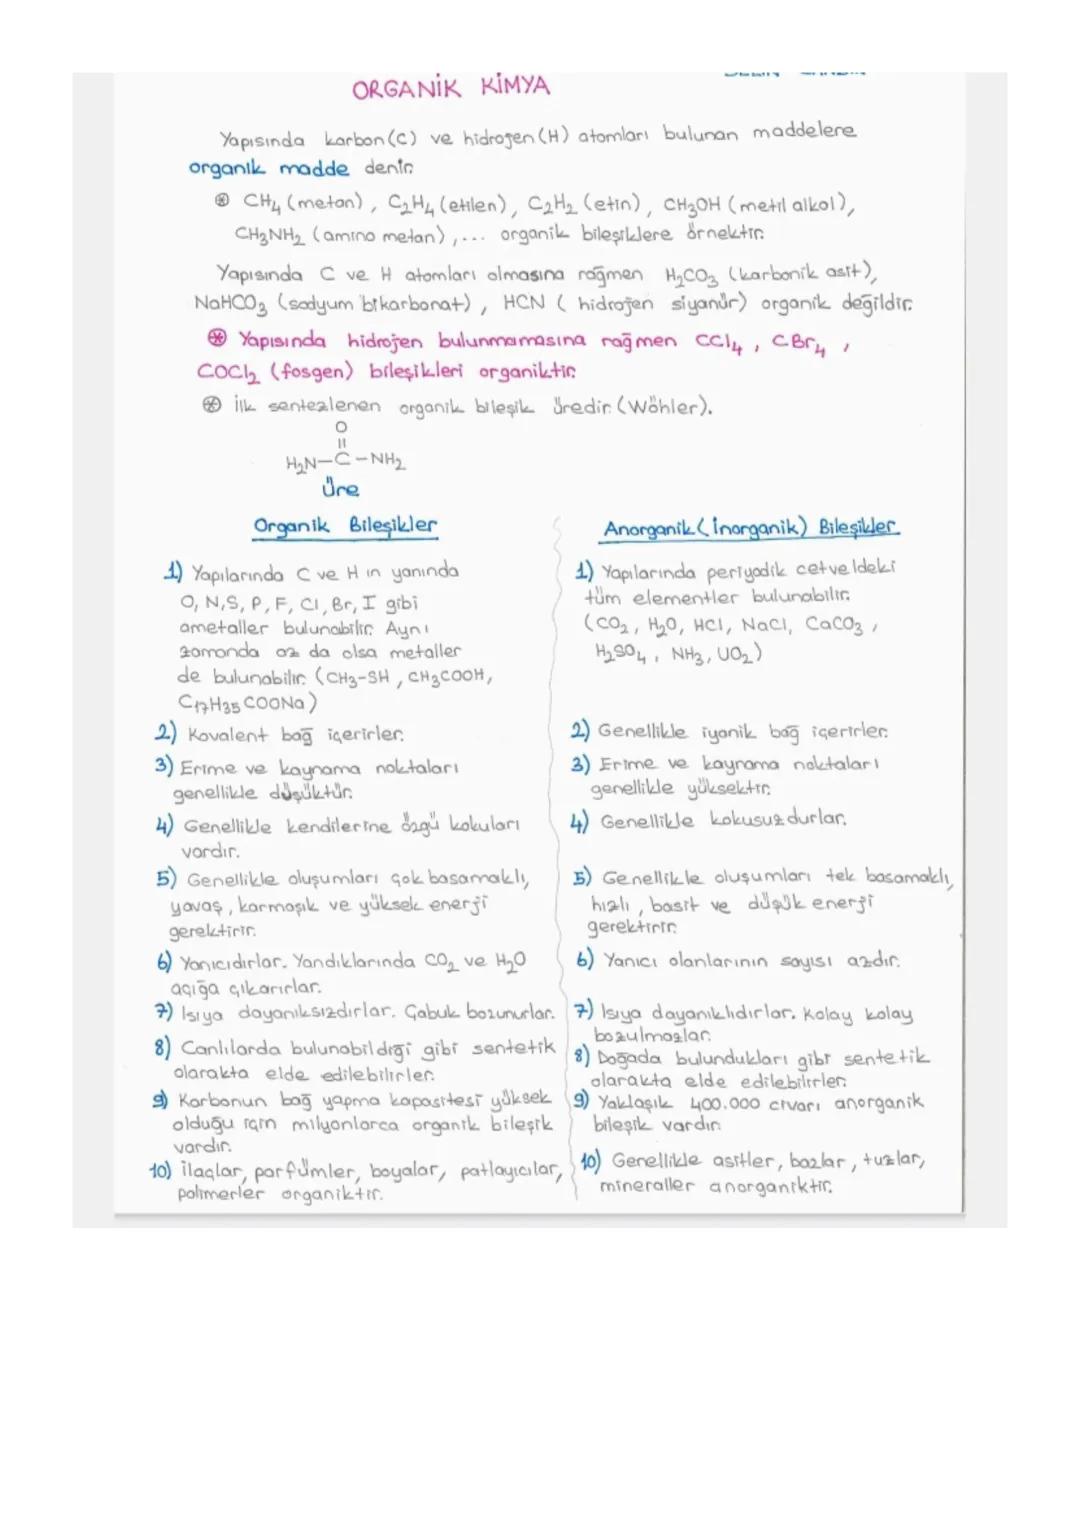 ORGANİK KİMYA
Yapısında karbon(C) ve hidrojen(H) atomları bulunan maddelere
organik madde denir.
⊛ CH₄ (metan), C₂H₄ (etilen), C₂H₂ (etin), CH₃OH (metil alkol),
CH₃NH₂ (amino metan),... organik bileşiklere örnektir.
Yapısında C ve H atomları olmasına rağmen H₂CO₃ (karbonik asit),
NaHCO₃ (sodyum bikarbonat), HCN ( hidrojen siyanür) organik değildir.
⊛ Yapısında hidrojen bulunmamasına rağmen CCl₄, CBr₄,
COCl₂ (fosgen) bileşikleri organiktir.
⊛ İlk sentezlenen organik bileşik üredir. (Wöhler).
O
||
H₂N-C-NH₂
Üre
Organik Bileşikler
1) Yapılarında C ve H ın yanında
O, N, S, P, F, Cl, Br, I gibi
ametaller bulunabilir. Aynı
zamanda az da olsa metaller
de bulunabilir. (CH₃-SH, CH₃COOH,
C₁₇H₃₅COONa)
2) Kovalent bağ içerirler.
3) Erime ve kaynama noktaları
genellikle düşüktür.
4) Genellikle kendilerine özgü kokuları
vardır.
5) Genellikle oluşumları çok basamaklı,
yavaş, karmaşık ve yüksek enerji
gerektirir.
6) Yanıcıdırlar. Yandıklarında CO₂ ve H₂O
açığa çıkarırlar.
7) Isıya dayanıksızdırlar. Çabuk bozunurlar.
8) Canlılarda bulunabildiği gibi sentetik
olarakta elde edilebilirler.
9) Karbonun bağ yapma kapasitesi yüksek
olduğu için milyonlarca organik bileşik
vardır.
10) İlaçlar, parfümler, boyalar, patlayıcılar,
polimerler organiktir.
Anorganik (İnorganik) Bileşikler
1) Yapılarında periyodik cetveldeki
tüm elementler bulunabilir.
(CO₂, H₂O, HCl, NaCl, CaCO₃,
H₂SO₄, NH₃, UO₂)
2) Genellikle iyonik bağ içerirler.
3) Erime ve kaynama noktaları
genellikle yüksektir.
4) Genellikle kokusuzdurlar.
5) Genellikle oluşumları tek basamaklı,
hızlı, basit ve düşük enerji
gerektirir.
6) Yanıcı olanlarının sayısı azdır.
7) Isıya dayanıklıdırlar. Kolay kolay
bozulmazlar.
8) Doğada bulundukları gibi sentetik
olarakta elde edilebilirler.
9) Yaklaşık 400.000 civarı anorganik
bileşik vardır.
10) Genellikle asitler, bazlar, tuzlar,
mineraller anorganiktir.